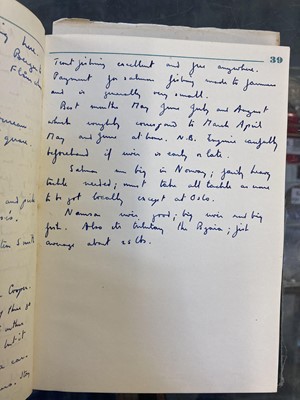 39
Trout fishing excellent and free anywhere.
Payment for salmon fishing made to farmers
and is generally very small.
Best months May June July and August
which roughly correspond to March April
May and June at home. N.B. Enquire carefully
beforehand if river is early or late.
Salmon are big in Norway; fairly heavy
tackle needed; must take all tackle as none
to be got locally except at Oslo.
Namsen river good; big river and big
fish. Also its tributary the ; fish
average about 25 lbs.
here
and
Cooper.
but it